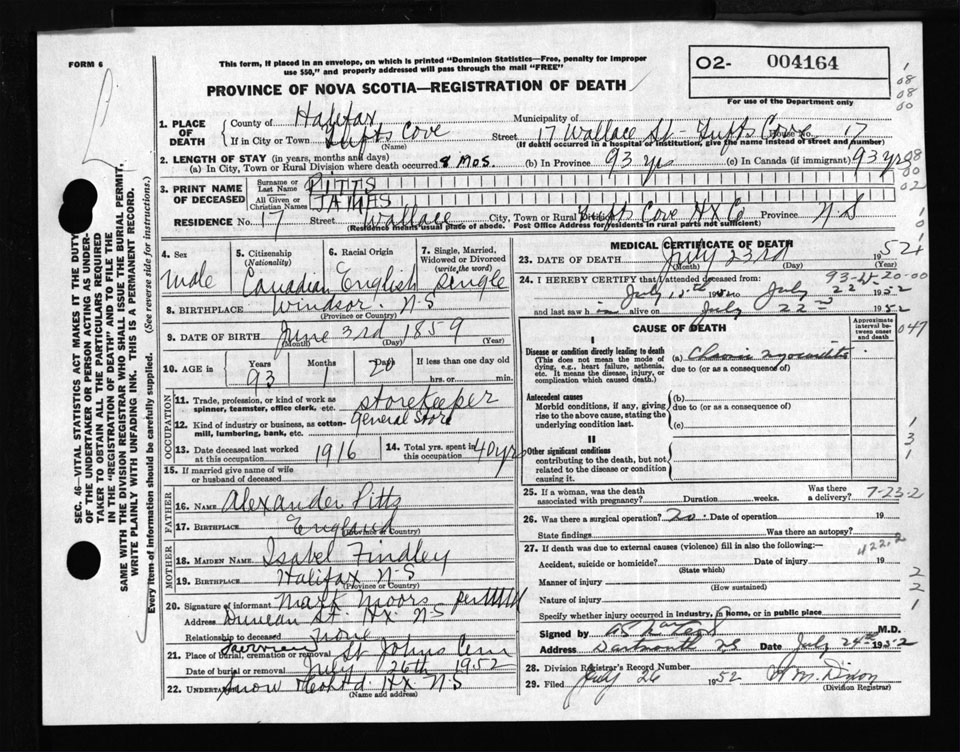 FORM 6
This form, if placed in an envelope, on which is printed "Dominion Statistics—Free, penalty for improper
use $50," and properly addressed will pass through the mail "FREE"
O2- 004164
For use of the Department only
PROVINCE OF NOVA SCOTIA—REGISTRATION OF DEATH
1. PLACE OF DEATH
County of Halifax Municipality of
If in City or Town Tufts Cove Street 17 Wallace St - Tufts Cove House No. 17
(Name) (If death occurred in a hospital or institution, give the name instead of street and number)
2. LENGTH OF STAY (in years, months and days)
(a) In City, Town or Rural Division where death occurred 8 Mos. (b) In Province 93 yrs (c) In Canada (if immigrant) 93 yrs
3. PRINT NAME OF DECEASED
Surname or Last Name PITTS
All Given or Christian Names JAMES
RESIDENCE No. 17 Street Wallace City, Town or Rural Division Tufts Cove Hx Co Province N.S
(Residence means usual place of abode. Post Office Address for residents in rural parts not usual)
4. Sex
Male
5. Citizenship
(Nationality)
Canadian
6. Racial Origin
English
7. Single, Married, Widowed or Divorced
(write the word)
Single
8. BIRTHPLACE Windsor N-S
(Province or Country)
9. DATE OF BIRTH June 3rd 1859
(Month) (Day) (Year)
10. AGE in Years Months Days If less than one day old
93 1 20 hrs. or min.
OCCUPATION
11. Trade, profession, or kind of work as spinner, teamster, office clerk, etc. storekeeper
12. Kind of industry or business, as cotton-mill, lumbering, bank, etc. General Store
13. Date deceased last worked at this occupation 1916
14. Total yrs. spent in this occupation 40 yrs
15. If married give name of wife or husband of deceased
FATHER
16. Name Alexander Pitts
17. Birthplace England
(Province or Country)
MOTHER
18. MAIDEN NAME Isabel Findley
19. Birthplace Halifax N-S
(Province or Country)
20. Signature of informant Mark Moors per
Address Duncan St. Hx. N-S
Relationship to deceased None
21. Place of burial, cremation or removal St Johns Cem
Date of burial or removal July 26th 1952
22. Undertaker Snow &Co Ltd. Hx N-S
(Name and address)
MEDICAL CERTIFICATE OF DEATH
23. DATE OF DEATH July 23rd 1952
(Month) (Day) (Year)
93-1-20-00
24. I HEREBY CERTIFY that I attended deceased from:
July 15th 1952 to July 22nd 1952
and last saw him alive on July 22nd 1952
CAUSE OF DEATH
Approximate interval between onset and death
I
Disease or condition directly leading to death
(This does not mean the mode of dying, e.g., heart failure, asthenia, etc. It means the disease, injury, or complication which caused death.)
(a) Chronic myocarditis
due to (or as a consequence of)
Antecedent causes
Morbid conditions, if any, giving rise to the above cause, stating the underlying condition last.
(b)
due to (or as a consequence of)
(c)
II
Other significant conditions
contributing to the death, but not related to the disease or condition causing it.
25. If a woman, was the death associated with pregnancy? Duration weeks. Was there a delivery?
7-23-2
26. Was there a surgical operation? no. Date of operation 19
State findings Was there an autopsy?
27. If death was due to external causes (violence) fill in also the following:—
422.2
Accident, suicide or homicide? Date of injury 19
(State which)
Manner of injury
(How sustained)
Nature of injury
Specify whether injury occurred in industry, in home, or in public place
Signed by M.D.
Address Dartmouth NS Date July 24th 1952
28. Division Registrar's Record Number
29. Filed July 26 1952 M. Dixon
(Division Registrar)
SEC. 46—VITAL STATISTICS ACT MAKES IT THE DUTY
OF THE UNDERTAKER OR PERSON ACTING AS UNDER-
TAKER TO OBTAIN ALL THE PARTICULARS REQUIRED
IN THE "REGISTRATION OF DEATH" AND TO FILE THE
SAME WITH THE DIVISION REGISTRAR WHO SHALL ISSUE THE BURIAL PERMIT.
WRITE PLAINLY WITH UNFADING INK. THIS IS A PERMANENT RECORD.
Every item of information should be carefully supplied. (See reverse side for instructions.)